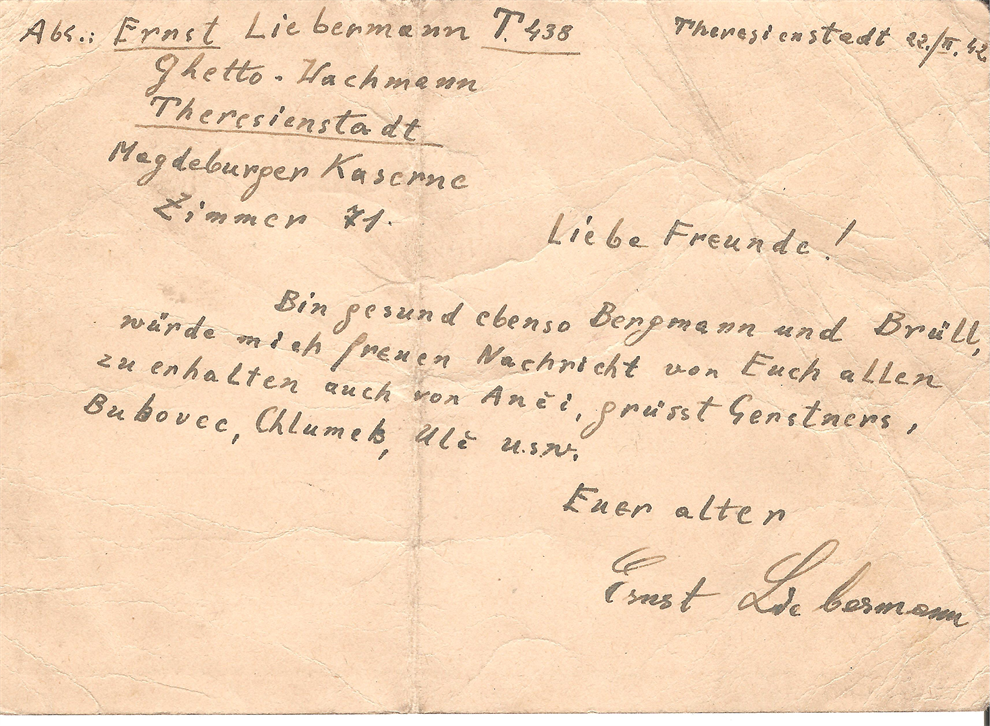 Abs.: Ernst Liebermann T. 438
Theresienstadt 22./II. 42.
Ghetto-Wachmann
Theresienstadt
Magdeburger Kaserne
Zimmer 71.
Liebe Freunde!
Bin gesund ebenso Bergmann und Brüll,
würde mich freuen Nachricht von Euch allen
zu erhalten auch von Anči, grüsst Gerstners,
Bubovec, Chlumek, Ulč u.s.w.
Euer alter
Ernst Liebermann